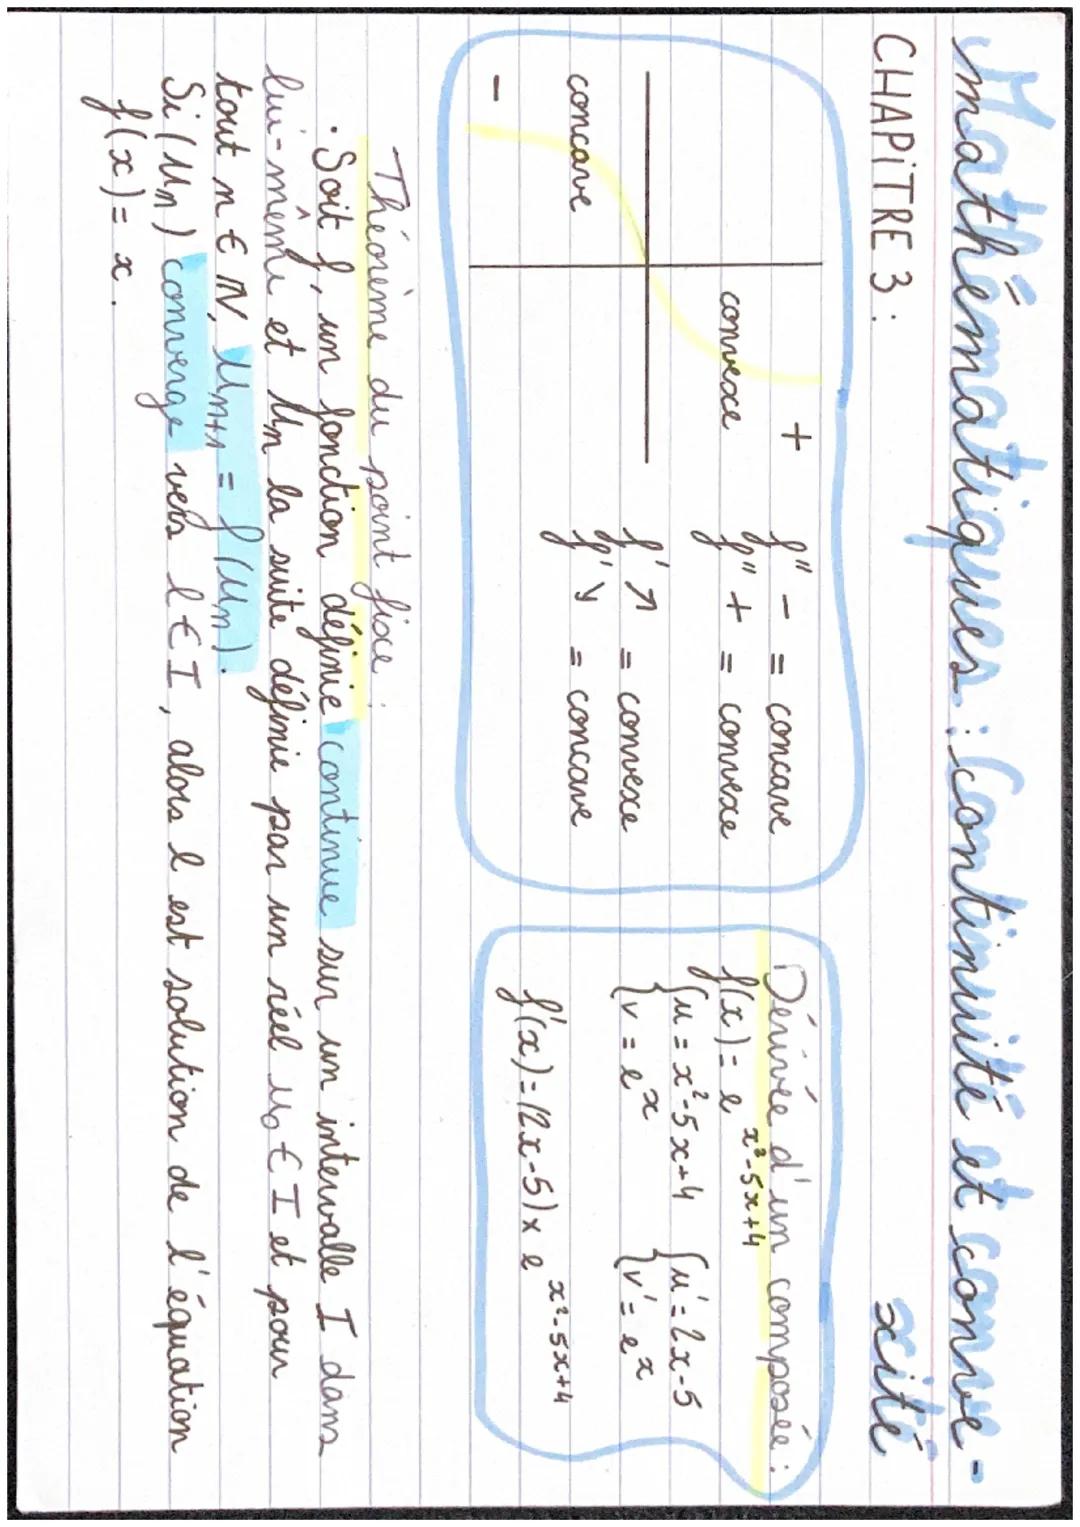 Mathématiques : Continuité et conve-
xité
CHAPITRE 3 :
+
convexe
concave
-
f'' - = concave
f'' + = convexe
f' ↗ = convexe
f' ↘ = concave
Dérivée d'un composée :
f(x) = e^{x²-5x+4}
{u = x²-5x+4 {u' = 2x-5
{v = e^x {v' = e^x
f'(x) = (2x-5) x e^{x²-5x+4}
Théorème du point fixe :
· Soit f, un fonction définie continue sur un intervalle I dans
lui-même et Un la suite définie par un réel U0 ∈ I et pour
tout n ∈ N, Un+1 = f(Un).
Si (Un) converge vers l ∈ I, alors l est solution de l'équation
f(x) = x.